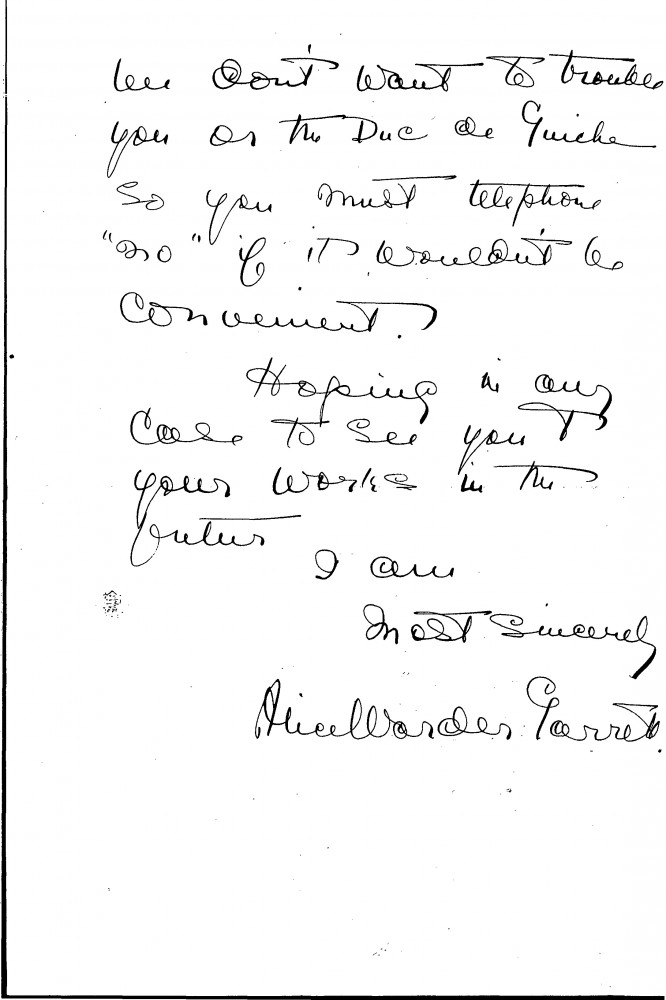 We don't want to trouble
you or the Duc de Guiche
so you must telephone
"no" if it wouldn't be
convenient.
Hoping in any
case to see you &
your works in the
future
I am
Most Sincerely
Alice Warder Garrett.